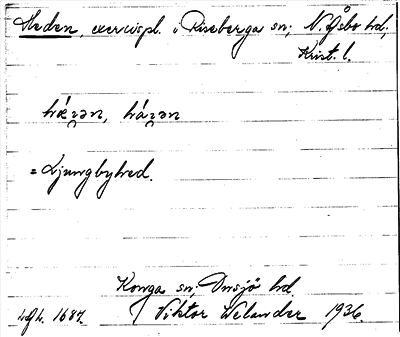 Heden, exercispl. i Riseberga sn; N. Åsbo hd;
Krist. l.
= Ljungbyhed.
Konga sn; Onsjö hd.
Viktor Welander 1936.